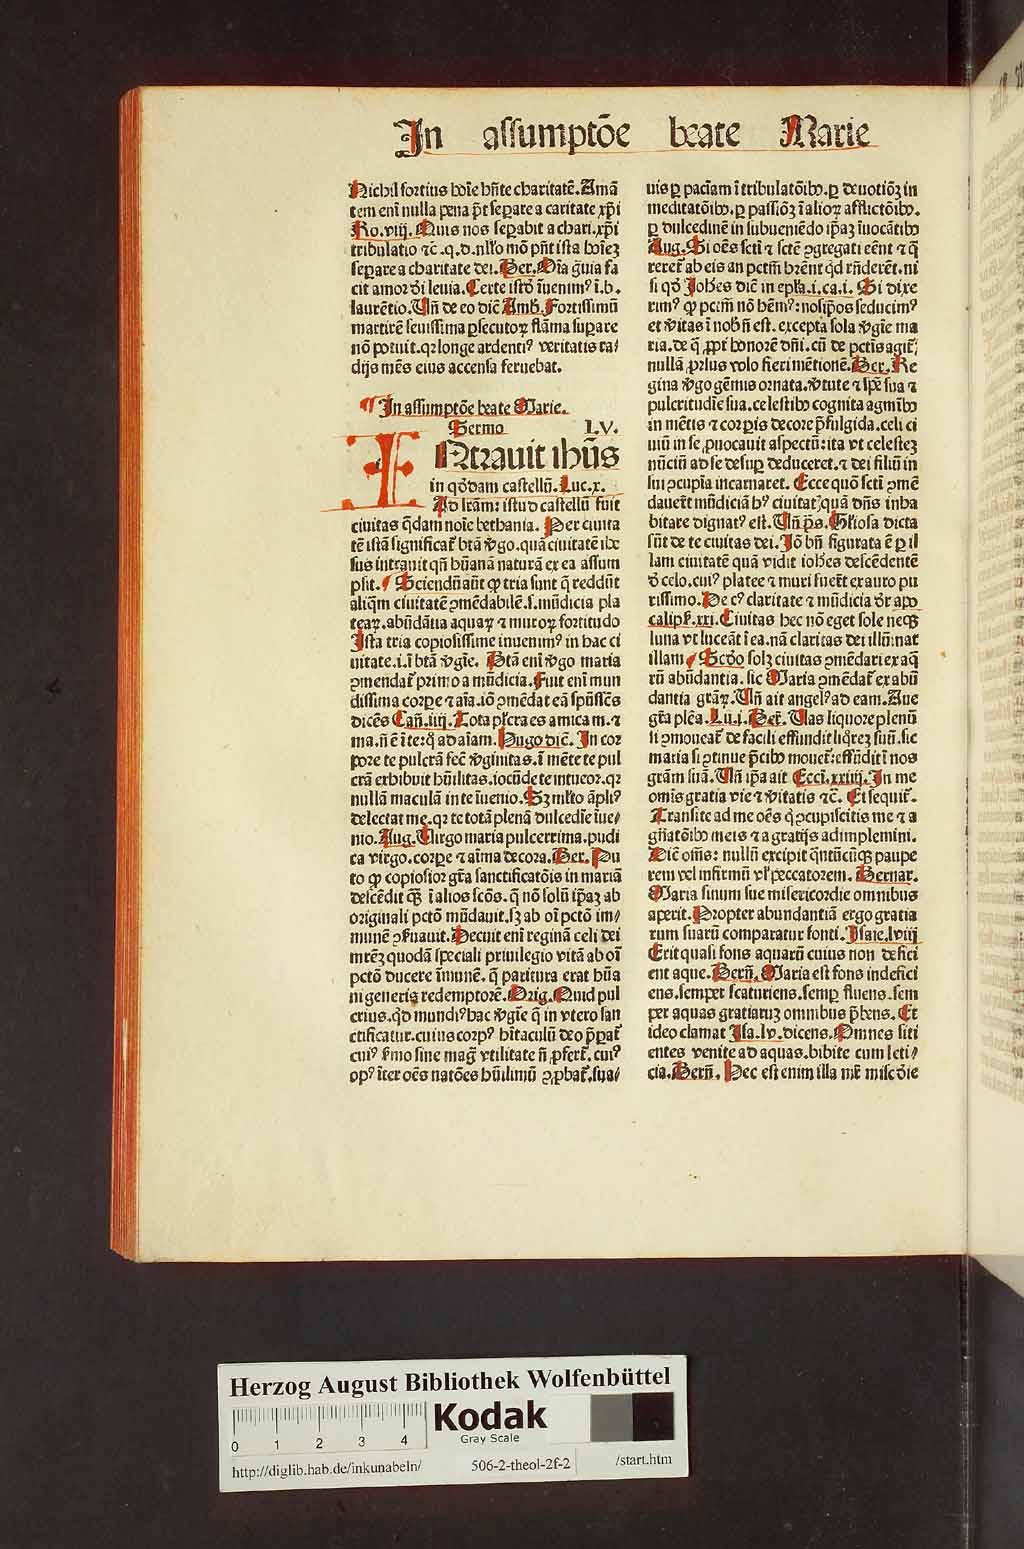 In assumptõe beate Marie
Nichil fortius hoĩe hñte charitatẽ. Amã
tem enĩ nulla pena p̃t seꝑare a caritate xp̃i
Ro. viij. Quis nos seꝑabit a chari. xp̃i
tribulatio ⁊c̃. q. d. nll̃o mõ pñt ista hoĩeꝫ
seꝑare a charitate dei. Ber. Oĩa g̃uia fa
cit amor d̾i leuia. Certe istd̾ ĩuenimꝰ ĩ. b.
laurẽtio. Vñ de eo dic̃ Amb. Fortissimũ
martirẽ seuissima ꝑsecutoꝝ flãma suꝑare
nõ potuit. qꝛ longe ardentiꝰ veritatis ra⸗
dijs mẽs eius accensa feruebat.
¶ In assumptõe beate Marie.
Sermo LV.
INtrauit ihũs
in qd̾dam castellũ. Luc. x.
Ad lr̃am: istud castellũ fuit
ciuitas q̃dam noĩe bethania. Per ciuita
tẽ istã significat̃ btã v̾go. quã ciuitatẽ ihe
sus intrauit qñ hũanã naturã ex ea assum
psit. ¶ Sciendũ aũt ꝙ tria sunt q̃ reddũt
aliqm̃ ciuitatẽ ꝯmẽdabilẽ. s. mũdicia pla
teaꝝ. abũdãtia aquaꝝ ⁊ muroꝝ fortitudo
Ista tria copiosissime inuenimꝰ in hac ci
uitate. i. ĩ btã v̾gĩe. Btã enĩ v̾go maria
ꝯmendat̃ primo a mũdicia. Fuit enĩ mun
dissima corꝑe ⁊ aĩa. iõ ꝯmẽdat eã spũssc̃s
dicẽs Cañ. iiij. Tota pulcra es amica m. ⁊
ma. ñ ẽ ĩ te: q̊ ad aĩam. Hugo dic̃. In cor
pore te pulcrã fec̃ v̾ginitas. ĩ mẽte te pul
crã exhibuit hũilitas. iocũde te intueor. qꝛ
nullã maculã in te ĩuenio. Sꝫ mlt̃o ãpliꝰ
delectat me. qꝛ te totã plenã dulcedĩe ĩue⸗
nio. Aug. Virgo maria pulcerrima. pudi
ca virgo. corꝑe ⁊ aĩma decora. Ber. Pu
to ꝙ copiosior gr̃a sanctificatõis in mariã
descẽdit ꝗ̃ ĩ alios scõs. q̃ nõ solũ ip̃aꝫ ab
originali pctõ mũdauit. sꝫ ab oĩ pctõ im⸗
munẽ ꝯẜuauit. Decuit enĩ reginã celi dei
mr̃eꝫ quodã speciali priuilegio vitã ab oĩ
pctõ ducere ĩmunẽ. q̃ paritura erat hũa
ni generis redemptorẽ. Orig. Quid pul
crius. qd̾ mundiꝰ hac v̾gĩe q̃ in vtero san
ctificatur. cuius corpꝰ hĩtaculũ deo p̃parat̃
cuiꝰ ẜmo sine mag̃ vtilitate ñ ꝓfert̃. cuiꝰ
opꝰ ĩter oẽs natões hũilimũ ꝯꝓbat̃. sua⸗
uis ꝑ paciam ĩ tribulatõibꝰ. ꝑ deuotiõꝫ in
meditatõibꝰ. ꝑ passiõꝫ ĩ alioꝝ afflictõibꝰ.
ꝑ dulcedinẽ in subueniẽdo ip̃aꝫ ĩuocãtibꝰ
Aug. Si oẽs sctĩ ⁊ sctẽ ꝯgregati eẽnt ⁊ q̃
reret̃ ab eis an pctm̃ hr̃ent qd̾ rñderẽt. ni
si qd̾ Johẽs dic̃ in epl̃a. i. ca. i. Si dixe
rimꝰ ꝙ pctm̃ nõ hẽmꝰ: nosip̃os seducimꝰ
et v̾itas ĩ nob̃ ñ est. excepta sola v̾gĩe ma
ria. de q̃ ꝓpt̃ honorẽ dñi. cũ de pctĩs agit̃
nullã ꝓrsus volo fieri mẽtionẽ. Ber. Re
gina v̾go gẽmis ornata. v̾tute ⁊ spẽ sua ⁊
pulcritudĩe sua. celestibꝰ cognita agmĩbꝰ
in mẽtis ⁊ corꝑis decore p̃fulgida. celi ci
uiũ in se ꝓuocauit aspectũ: ita vt celesteꝫ
nũciũ ad se desuꝑ deduceret. ⁊ dei filiũ in
sui ꝯcupĩa incarnaret. Ecce quõ sctĩ ꝯmẽ
dauer̃t mũdiciã hꝰ ciuitat̃. quã dñs inha
bitare dignatꝰ est. Vñ p̃s. Gl̃iosa dicta
sũt de te ciuitas dei. Iõ bñ figurata ẽ ꝑ il
lam ciuitatẽ quã vidit ioh̃es descẽdentẽ
d̾ celo. cuiꝰ platee ⁊ muri fuer̃t ex auro pu
rissimo. De cꝰ claritate ⁊ mũdicia d̾r apo
calip̃. xxi. Ciuitas hec nõ eget sole neqꝫ
luna vt luceãt ĩ ea. nã claritas dei illũinat
illam ¶ Scd̾o solꝫ ciuitas ꝯmẽdari ex aq̃
rũ abũdantia. sic Maria ꝯmẽdat̃ ex abũ
dantia gr̃aꝝ. Vñ ait angelꝰ ad eam. Aue
gr̃a plẽa. Lu. i. Ber. Vas liquore plenũ
si ꝯmoueat̃ de facili effundit liq̃reꝫ suũ. sic
maria si ꝯtinue p̃cibꝰ mouet̃: effũdit ĩ nos
gr̃am suã. Vñ ip̃a ait Ecci. xxiiij. In me
omĩs gratia vie ⁊ v̾itatis ⁊c̃. Et sequit̃.
Transite ad me oẽs q̇ ꝯcupiscitis me ⁊ a
gñatõibꝰ meis ⁊ a gratijs adimplemini.
Dic̃ om̃s: nullũ excipit q̃ntũcũqꝫ paupe
rem vel infirmũ vl̃ peccatorem. Bernar.
Maria sinum sue misericordie omnibus
aperit. Propter abundantiã ergo gratia
rum suarũ comparatur fonti. Isaie. lviij
Erit quasi fons aquarũ cuius non defici
ent aque. Berñ. Maria est fons indefici
ens. semper scaturiens. semꝑ fluens. sem
per aquas gratiarũ omnibus p̃bens. Et
ideo clamat Isa. lv. dicens. Omnes siti
entes venite ad aquas. bibite cum leti⸗
cia. Berñ. Hec est enim illa mr̃ mis̃cd̾ie
Herzog August Bibliothek Wolfenbüttel
0 1 2 3 4
Kodak
Gray Scale
http://diglib.hab.de/inkunabeln/ 506-2-theol-2f-2 /start.htm